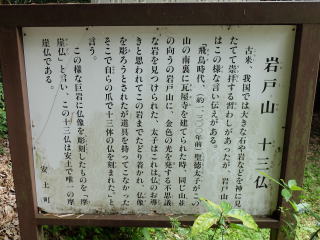 岩戸山 十三仏
古来、我国では大きな石や岩などを神に見
たてて崇拝する習わしがあったが、岩戸山に
はこの様な言い伝えがある。
飛鳥時代、(約一、三〇〇年前)聖徳太子が、
山の南裏に瓦屋寺を建てられた時、同じ山並
の向うの岩戸山に、金色の光を発する不思議
な岩を見つけられた、太子はこれは仏のお導
きと思われてこの岩までたどり着かれ、仏像
を彫ろうとされたが道具を持ってこなかった
そこで自らの爪で十三体の仏を刻まれた。と
言う。
この様な巨岩に仏像を彫刻したものを「摩
崖仏」と言い、この十三仏は安土で唯一の摩
崖仏である。
安土町